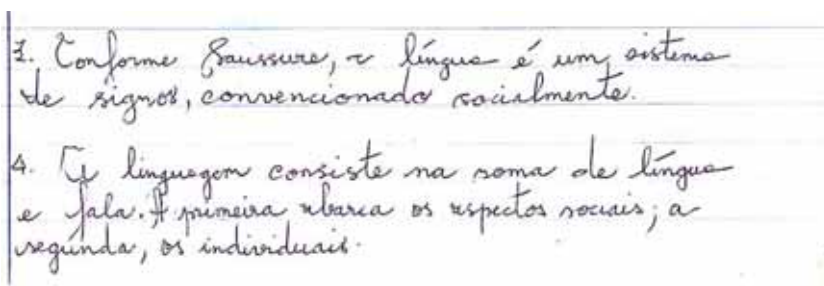 3. Conforme Saussure, a língua é um sistema
de signos, convencionado socialmente.
4. A linguagem consiste na soma de língua
e fala. A primeira abarca os aspectos sociais; a
segunda, os individuais.